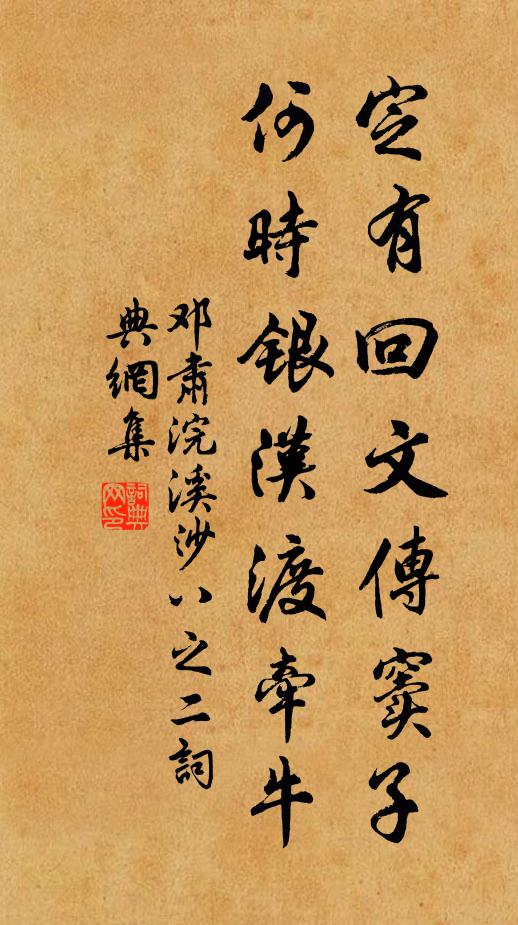 定有回文傳竇子
何時銀漢渡牽牛
邓肅浣溪沙八之二詞
典網集
詞典
网印